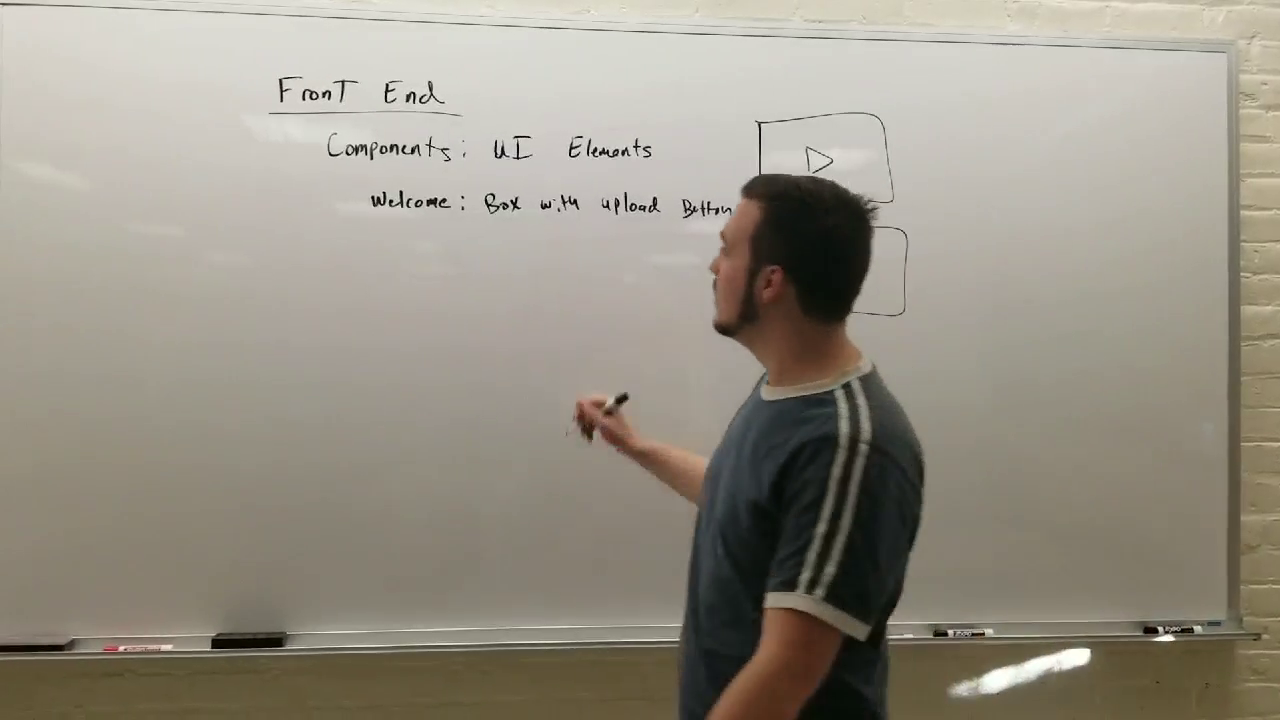 Front End
Components: UI Elements
Welcome: Box with upload Button